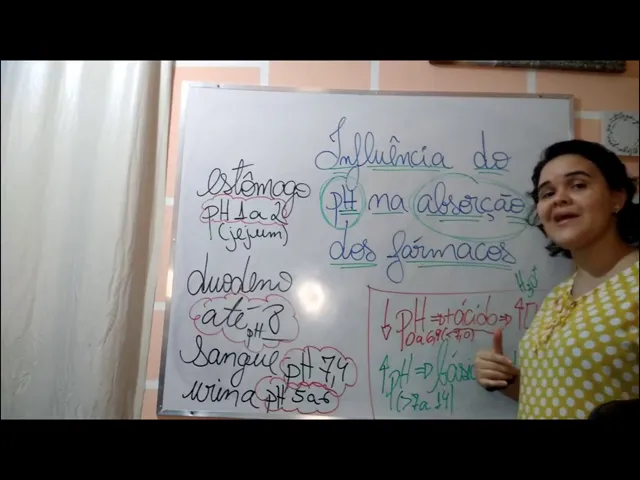 Influência do
pH na absorção
dos fármacos
estômago
pH 1 a 2
(jejum)
duodeno
até pH 8
sangue pH 7,4
urina pH 5 a 6
↓ pH ⇒ + ácido ⇒ ↑
0 a 6,9 (< 7,0)
↑ pH ⇒
(>7 a 14)